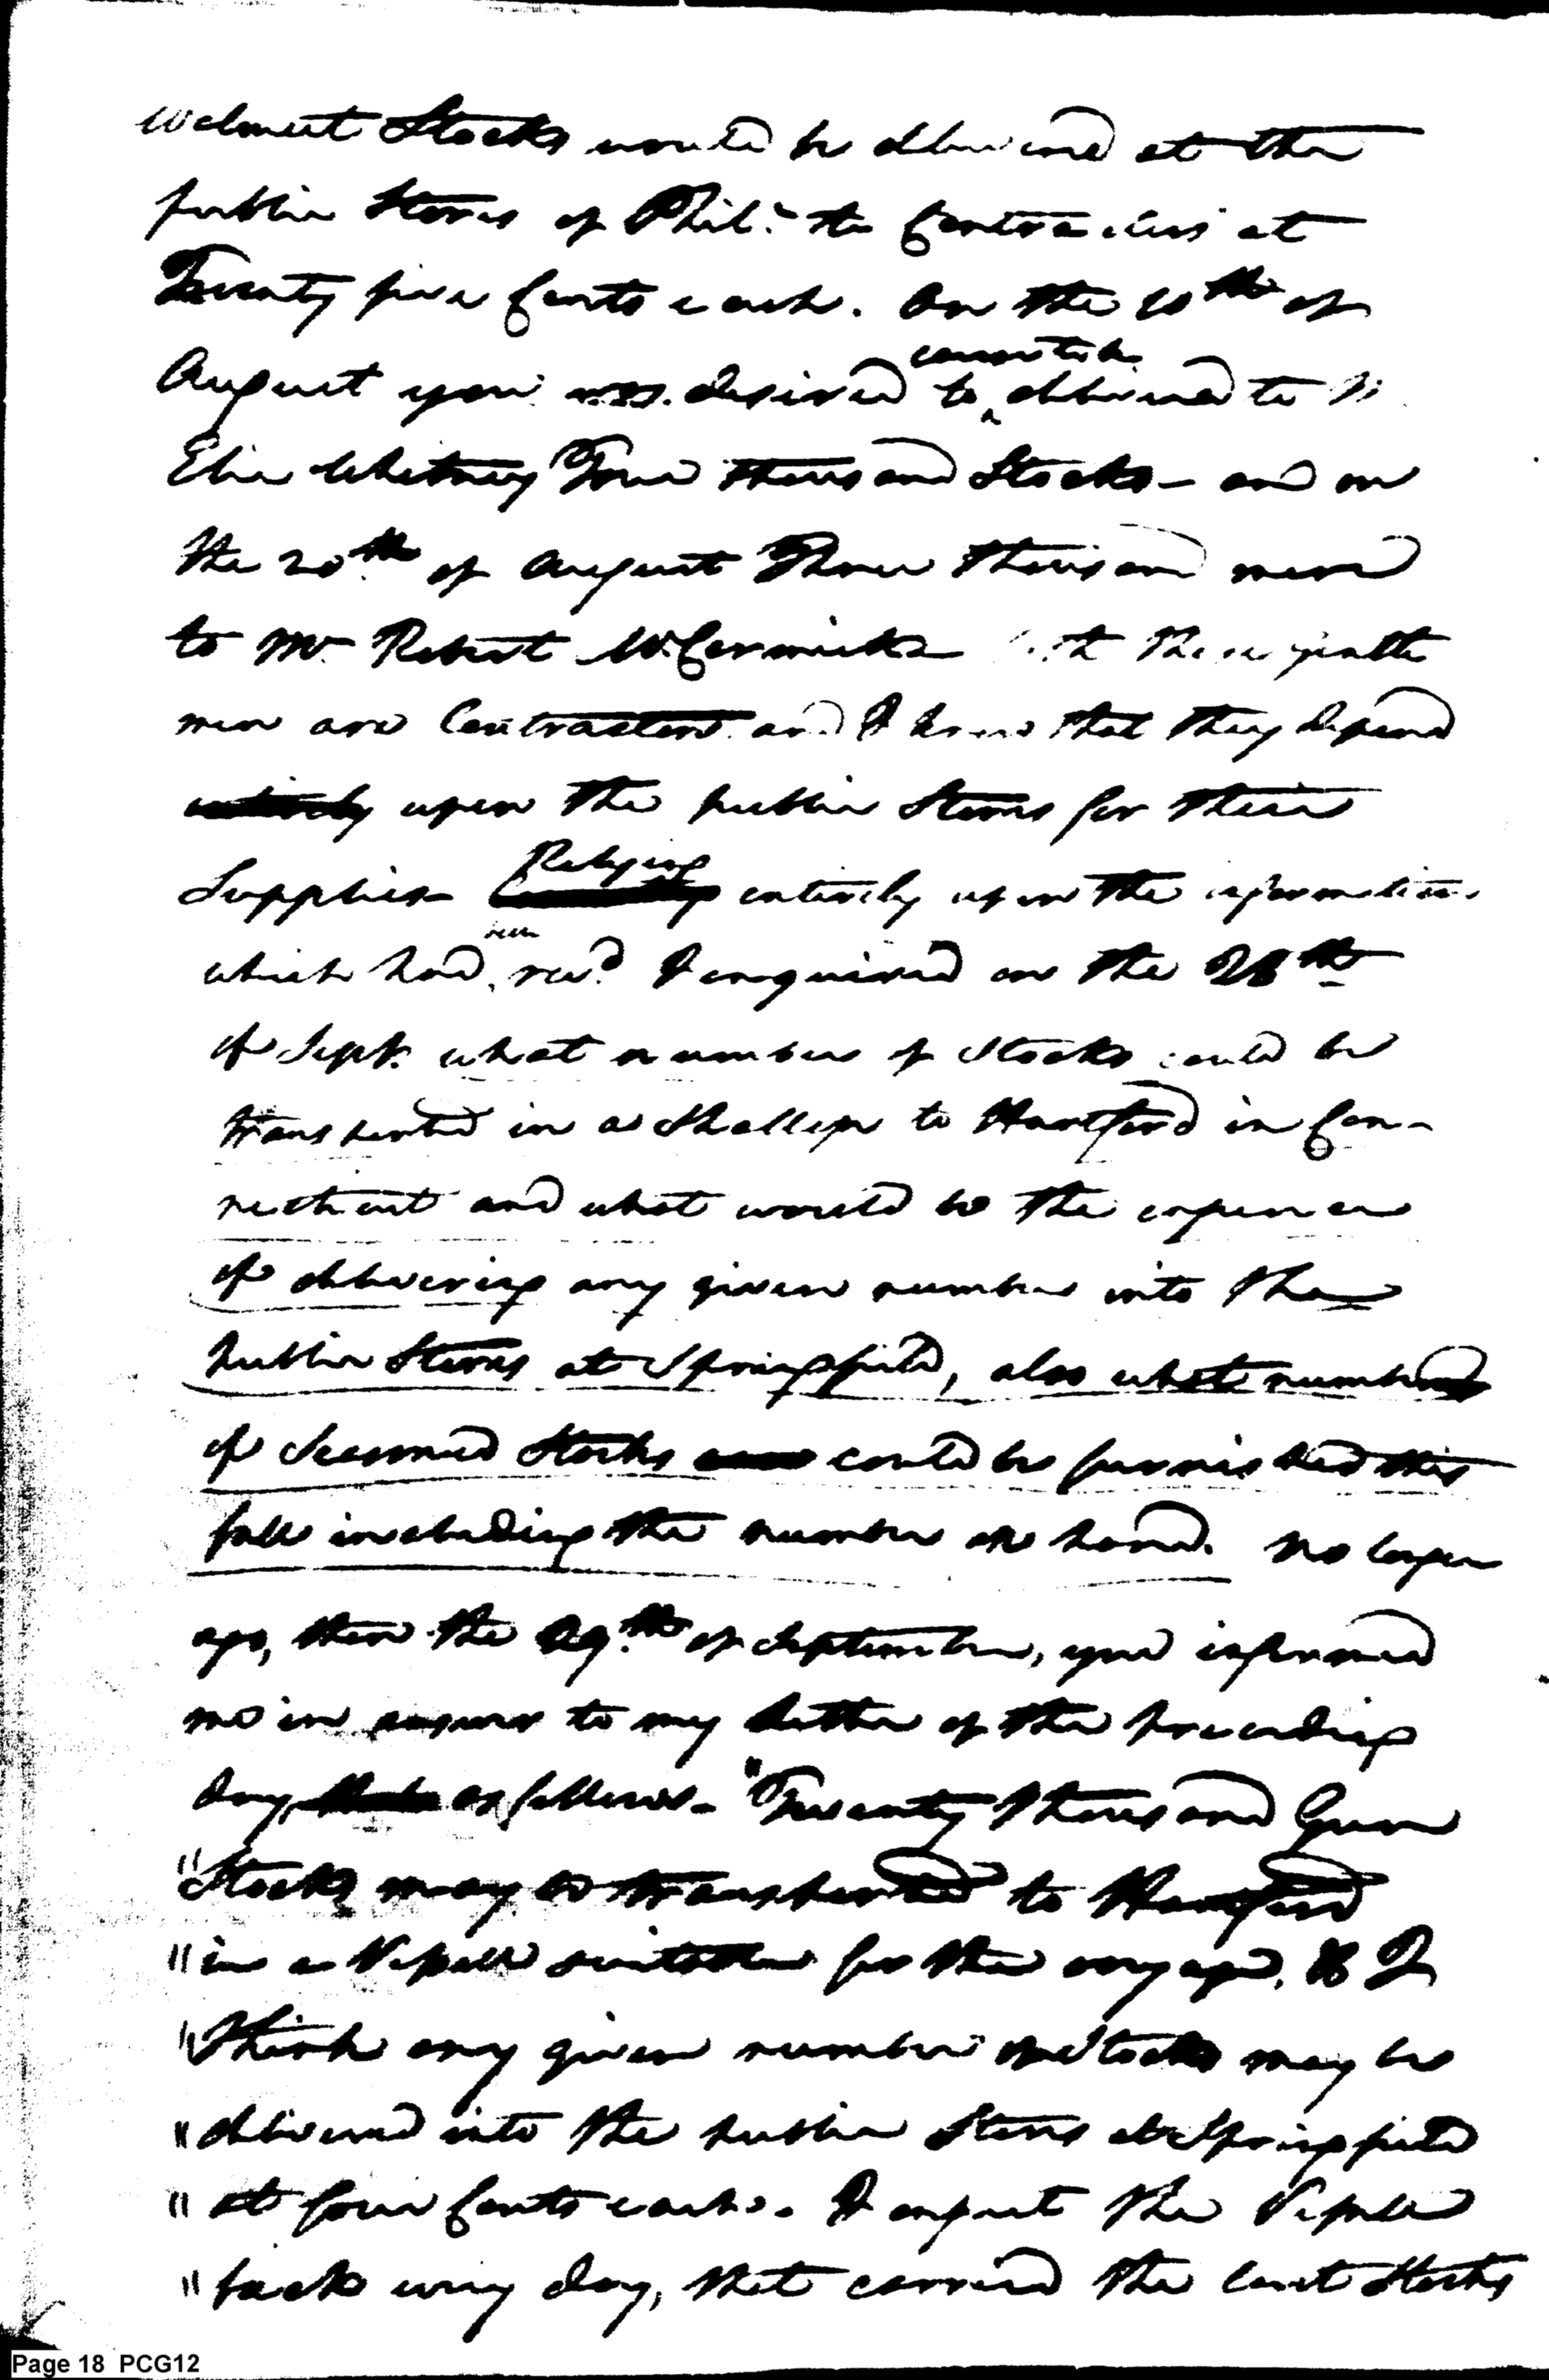 Walnut Stocks would be delivered at the
public Stores of Phil.ᵃ to Contractors at
Twenty five Cents each. On the 10th of
August you was desired to cause to be delivered to
Elie Whitney Four thousand Stocks – and on
the 20th of August Three thousand more
to Mr Robert McCormick these gentle
men are Contractors and I knew that they depend
entirely upon the public Stores for their
Supplies Relying entirely upon the information
which had been recd I enquired on the 28th
of Sept. what number of Stocks could be
transported in a Shallop to Hartford in Con-
necticut and what would be the expense
of delivering any given number into the
public Stores at Springfield, also what number
of Seasoned Stocks could be furnished this
fall including the number on hand. No longer
ago, than the 29.th of September, you informed
me in answer to my letter of the preceding
day, as follows – "Twenty thousand Gun
"Stocks may be transported to Hartford
"in a Vessell suitable for the voyage, & I
"think any given number of Stocks may be
"delivered into the public Stores at Springfield
"at four Cents each. I expect the Vessell
"back every day, that carried the last Stocks
Page 18 PCG12